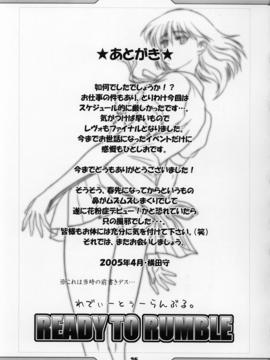 ★あとがき★
如何でしたでしょうか！？
お仕事の件もあり、とりわけ今回は
スケジュール的に厳しかったです…。
気がつけば早いもので
レヴォもファイナルとなりました。
今までお世話になったイベントだけに
感慨もひとしおです。
今までどうもありがとうございました！
そうそう、春先になってからというもの
鼻がムズムズしまくりでして
遂に花粉症デビュー！かと恐れていたら
只の風邪でした…。
皆様もお体には充分に気を付けて下さい。（笑）
それでは、またお会いしましょう。
2005年4月・横田守
※これは当時の前書きデス…
れでぃーとぅーらんぶる。
READY TO RUMBLE